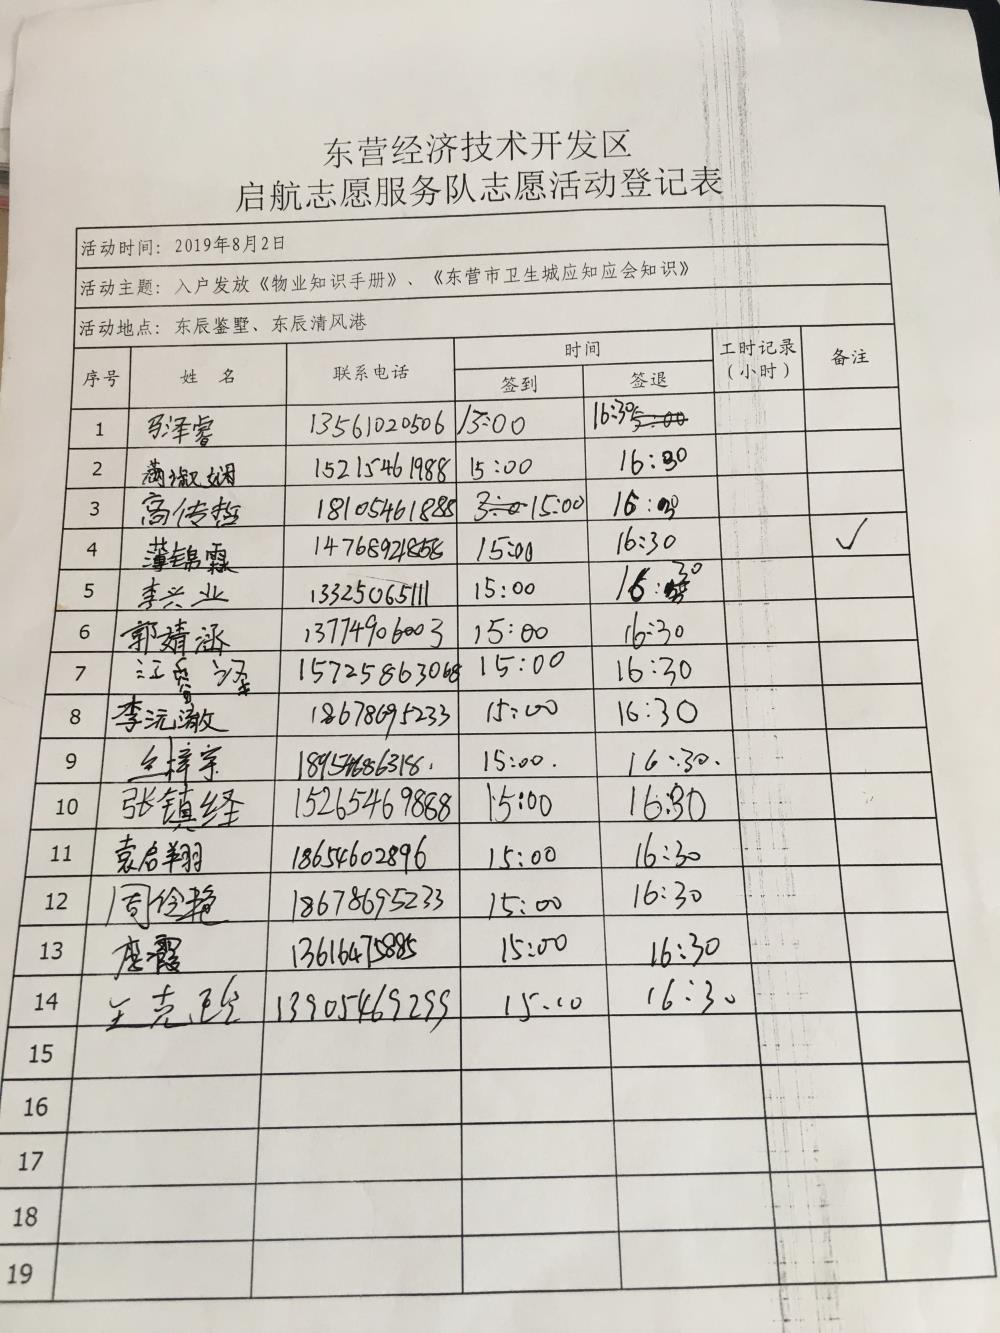 东营经济技术开发区
启航志愿服务队志愿活动登记表
活动时间：2019年8月2日
活动主题：入户发放《物业知识手册》、《东营市卫生城应知应会知识》
活动地点：东辰鉴墅、东辰清风港
序号 姓 名 联系电话 时间 工时记录（小时） 备注
签到 签退
1 马泽睿 13561020506 15:00 16:30
2 15215461988 15:00 16:30
3 高传哲 18105461888 15:00 16:30
4 薄锦霖 14768921858 15:00 16:30 ✓
5 李兴业 13325065111 15:00 16:30
6 郭婧涵 13774906003 15:00 16:30
7 江 泽 15725863068 15:00 16:30
8 李沅澈 18678695233 15:00 16:30
9 梓宇 18954686318. 15:00. 16:30.
10 张镇经 15265469888 15:00 16:30
11 袁启翔 18654602896 15:00 16:30
12 周伶艳 18678695233 15:00 16:30
13 唐霞 13616475885 15:00 16:30
14 王克 13905469299 15:00 16:30
15
16
17
18
19